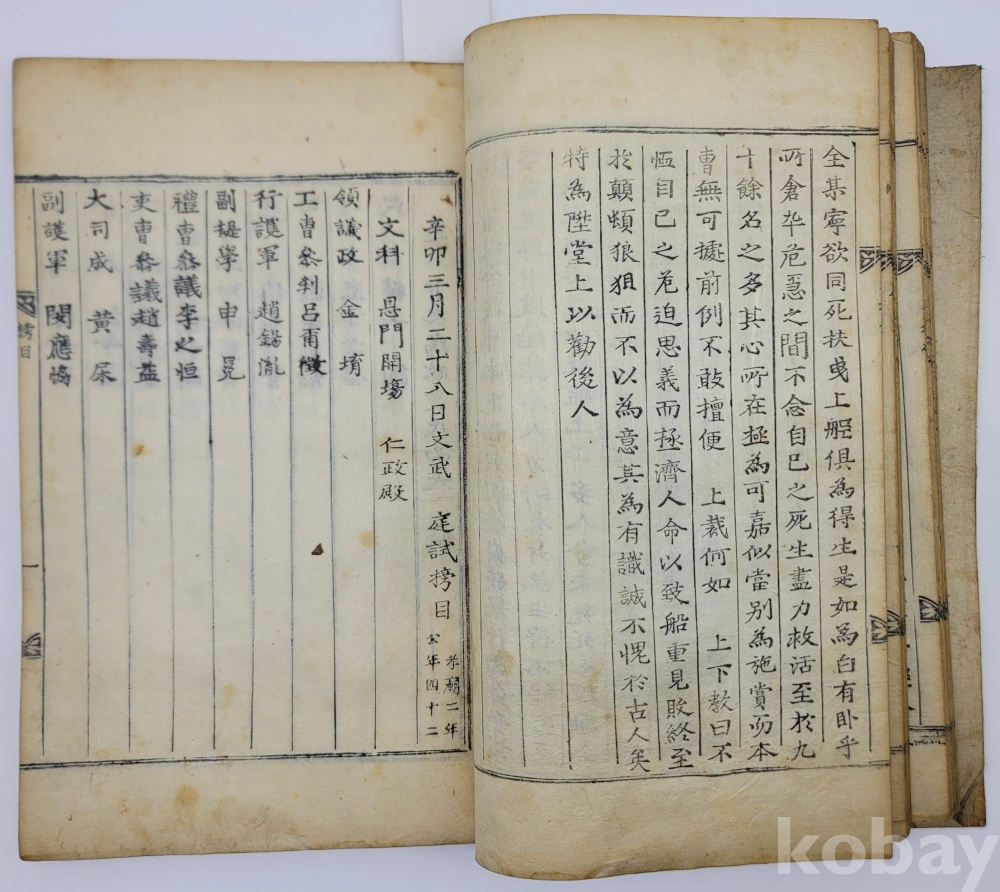 全某寧欲同死扶曳上船俱爲得生是如爲白有卧乎
所倉卒危急之間不念自己之死生盡力救活至於九
十餘名之多其心所在極爲可嘉似當別爲施賞而本
曹無可據前例不敢擅便 上裁何如 上下教曰不
恤自己之危迫思義而拯濟人命以致船重見敗終至
於顚頓狼狽而不以爲意其爲有識誠不愧於古人矣
特爲陞堂上以勸後人
辛卯三月二十八日文武 庭試榜目
孝廟二年
公年四十二
文科 恩門開場 仁政殿
領議政 金堉
工曹參判呂爾徵
行護軍 趙錫胤
副提學 申冕
禮曹參議李之恒
吏曹參議趙壽益
大司成 黃杘
副護軍 閔應協
榜目
一
kobay